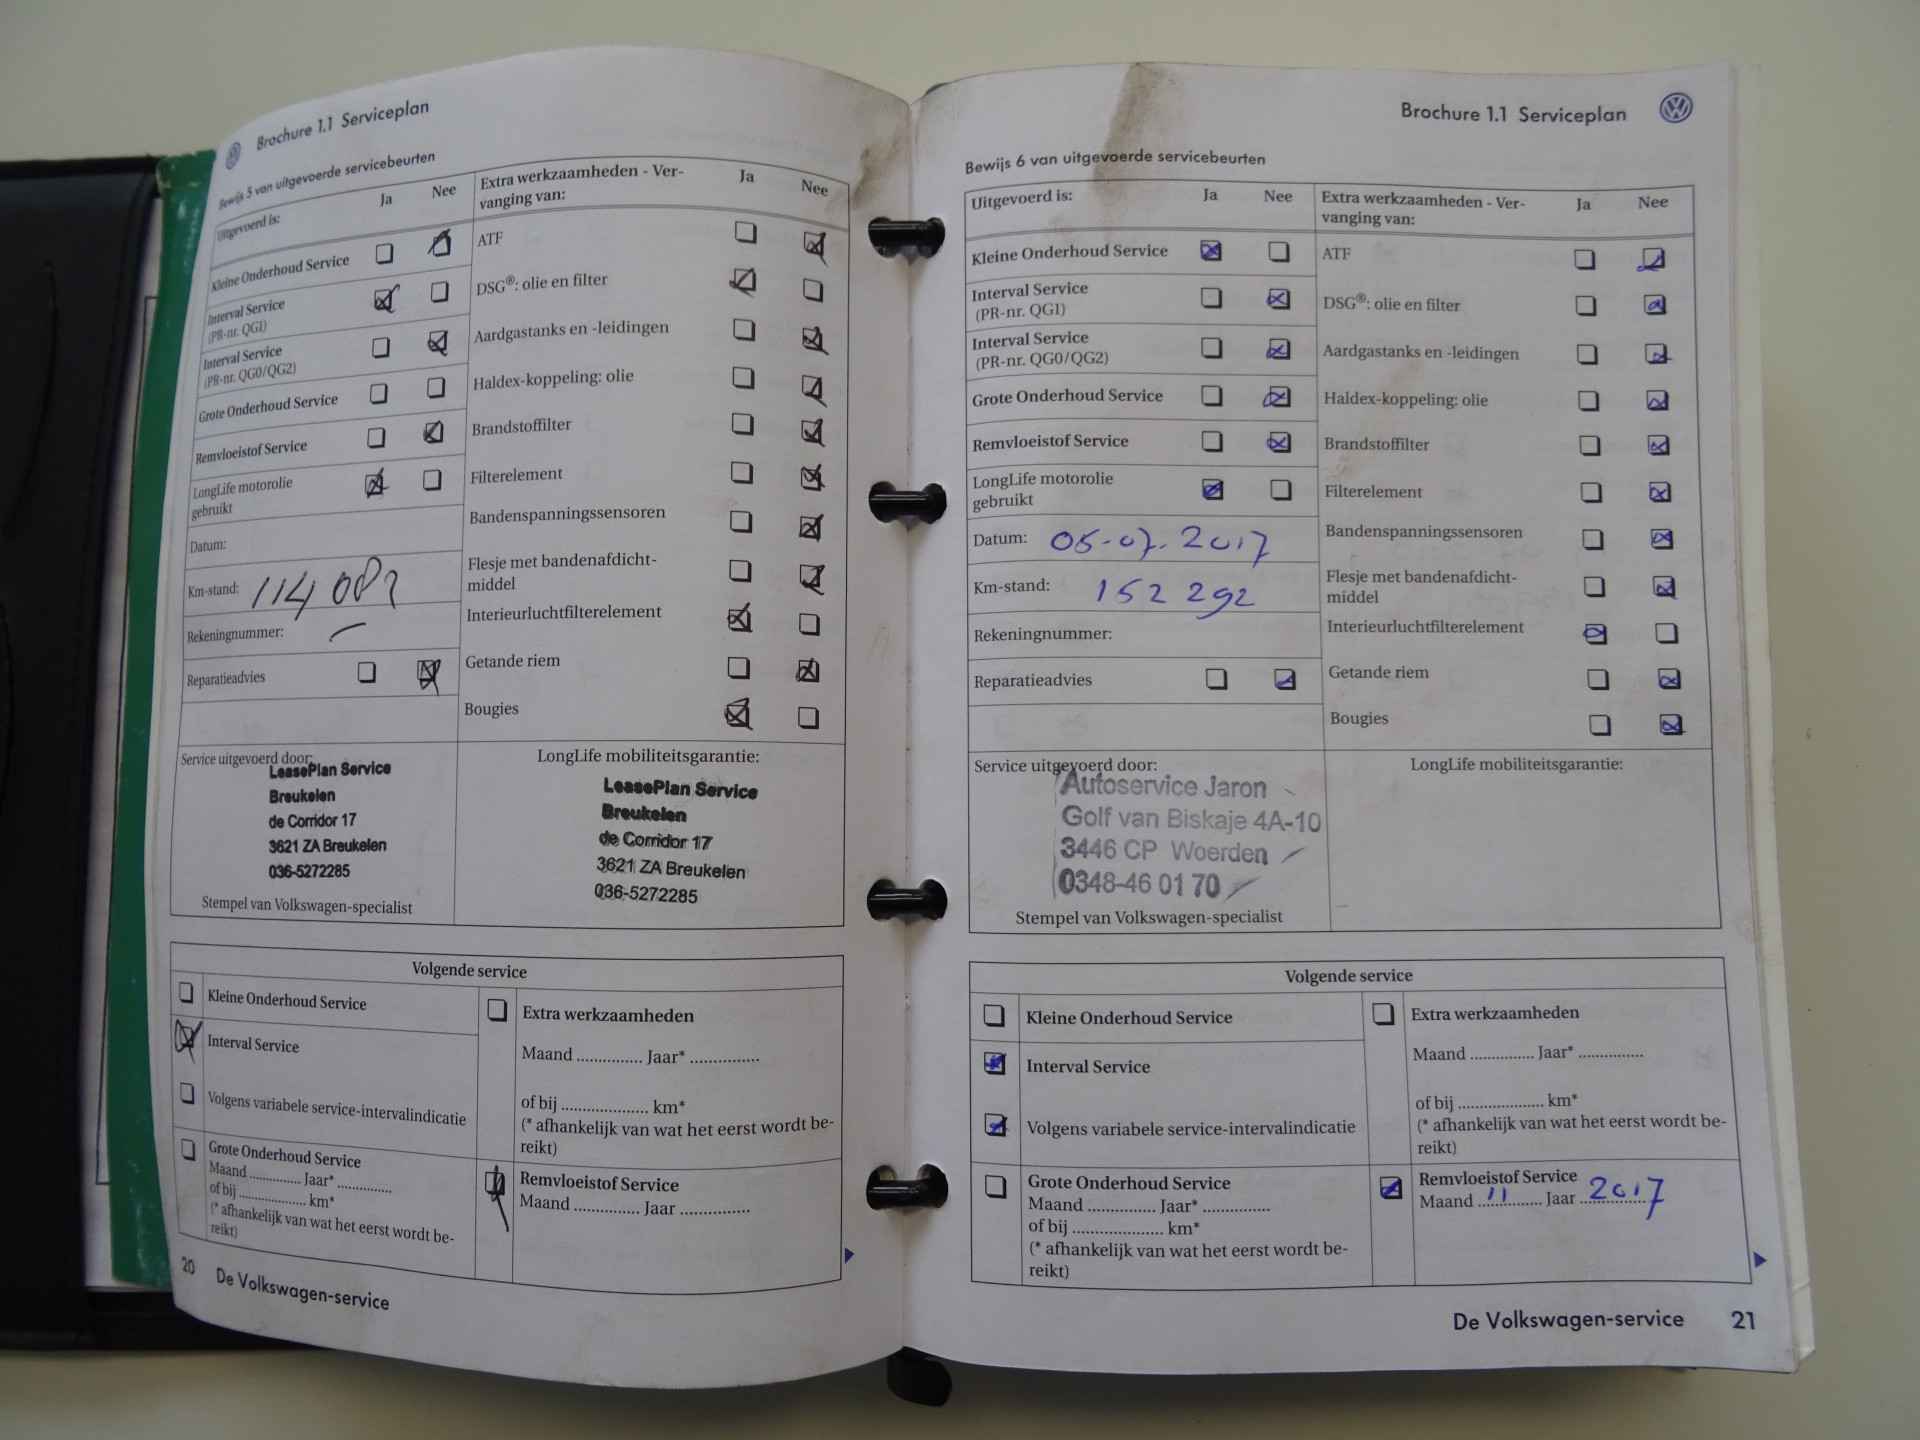 Brochure 1.1 Serviceplan
Bewijs 5 van uitgevoerde servicebeurten
Uitgevoerd is:
Ja
Nee
Kleine Onderhoud Service
Interval Service
(PR-nr. QG1)
Interval Service
(PR-nr. QG0/QG2)
Grote Onderhoud Service
Remvloeistof Service
LongLife motorolie
gebruikt
Datum:
Km-stand: 114 082
Rekeningnummer: –
Reparatieadvies
Extra werkzaamheden - Ver-
vanging van:
Ja
Nee
ATF
DSG®: olie en filter
Aardgastanks en -leidingen
Haldex-koppeling: olie
Brandstoffilter
Filterelement
Bandenspanningssensoren
Flesje met bandenafdicht-
middel
Interieurluchtfilterelement
Getande riem
Bougies
Service uitgevoerd door:
LeasePlan Service
Breukelen
de Corridor 17
3621 ZA Breukelen
036-5272285
Stempel van Volkswagen-specialist
LongLife mobiliteitsgarantie:
LeasePlan Service
Breukelen
de Corridor 17
3621 ZA Breukelen
036-5272285
Volgende service
Kleine Onderhoud Service
Interval Service
Volgens variabele service-intervalindicatie
Grote Onderhoud Service
Maand ............ Jaar* .............
of bij ................ km*
(* afhankelijk van wat het eerst wordt be-
reikt)
Extra werkzaamheden
Maand ............... Jaar* ................
of bij ..................... km*
(* afhankelijk van wat het eerst wordt be-
reikt)
Remvloeistof Service
Maand ............... Jaar ................
20 De Volkswagen-service
Brochure 1.1 Serviceplan
Bewijs 6 van uitgevoerde servicebeurten
Uitgevoerd is:
Ja
Nee
Kleine Onderhoud Service
Interval Service
(PR-nr. QG1)
Interval Service
(PR-nr. QG0/QG2)
Grote Onderhoud Service
Remvloeistof Service
LongLife motorolie
gebruikt
Datum: 05-07-2017
Km-stand: 152 292
Rekeningnummer:
Reparatieadvies
Extra werkzaamheden - Ver-
vanging van:
Ja
Nee
ATF
DSG®: olie en filter
Aardgastanks en -leidingen
Haldex-koppeling: olie
Brandstoffilter
Filterelement
Bandenspanningssensoren
Flesje met bandenafdicht-
middel
Interieurluchtfilterelement
Getande riem
Bougies
Service uitgevoerd door:
Autoservice Jaron
Golf van Biskaje 4A-10
3446 CP Woerden
0348-46 01 70
Stempel van Volkswagen-specialist
LongLife mobiliteitsgarantie:
Volgende service
Kleine Onderhoud Service
Interval Service
Volgens variabele service-intervalindicatie
Grote Onderhoud Service
Maand ................ Jaar* ................
of bij ...................... km*
(* afhankelijk van wat het eerst wordt be-
reikt)
Extra werkzaamheden
Maand ............... Jaar* ...............
of bij .................... km*
(* afhankelijk van wat het eerst wordt be-
reikt)
Remvloeistof Service
Maand 11 Jaar 2017
De Volkswagen-service 21